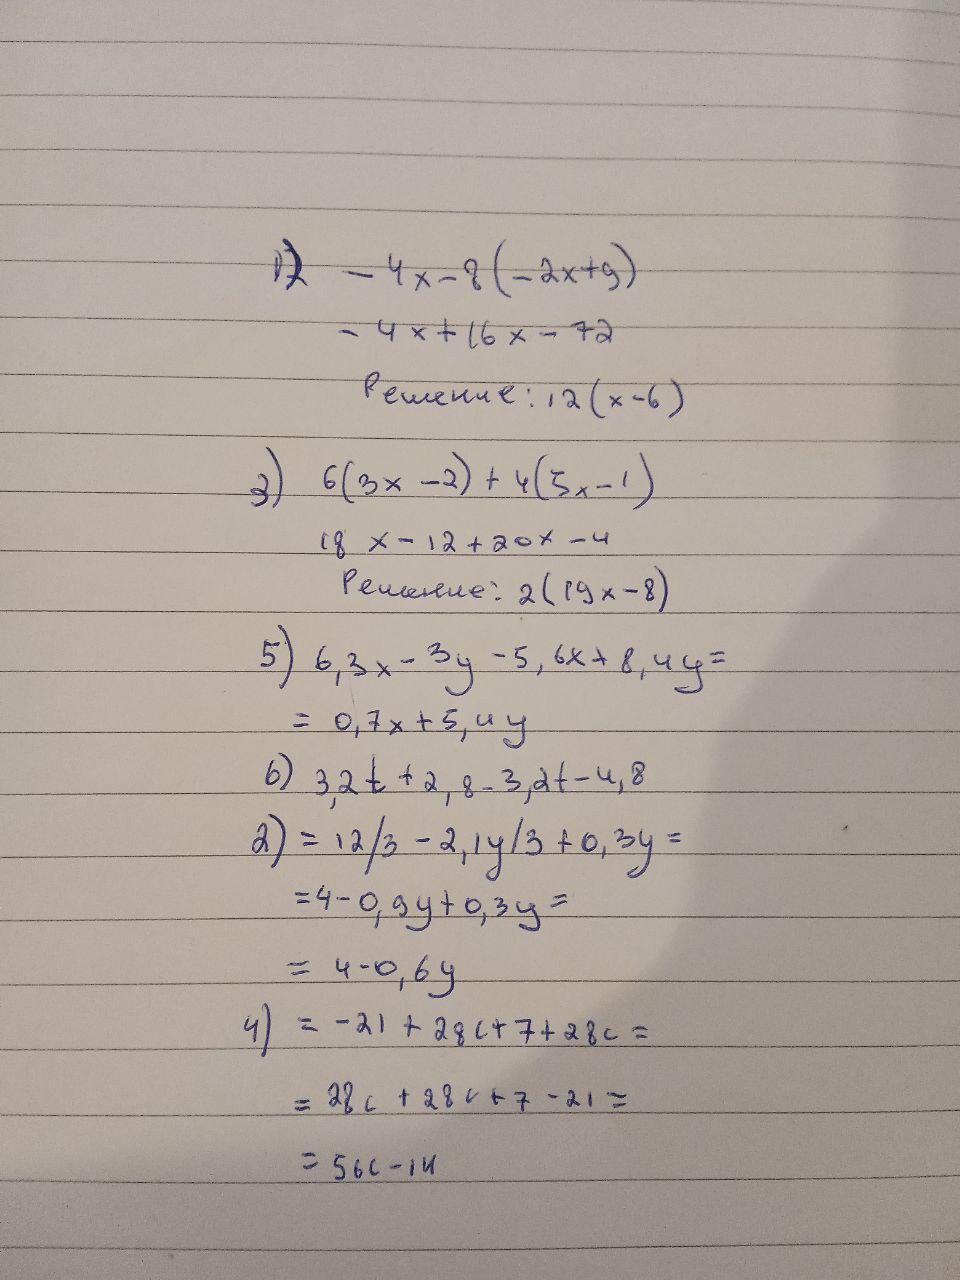 1) - 4x - 8(-2x+9)
- 4x + 16x - 72
Решение: 12(x-6)
3) 6(3x - 2) + 4(5x - 1)
18x - 12 + 20x - 4
Решение: 2(19x - 8)
5) 6,3x - 3y - 5,6x + 8,4y =
= 0,7x + 5,4y
6) 3,2t + 2,8 - 3,2t - 4,8
2) = 12/3 - 2,1y/3 + 0,3y =
= 4 - 0,9y + 0,3y =
= 4 - 0,6y
4) = -21 + 28c + 7 + 28c =
= 28c + 28c + 7 - 21 =
= 56c - 14